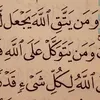 وَمَن يَتَّقِ ٱللَّهَ يَجْعَل لَّ
وَمَن يَتَوَكَّلْ عَلَى ٱللَّهِ فَ
ٱللَّهُ لِكُلِّ شَىْءٍ قَدْ